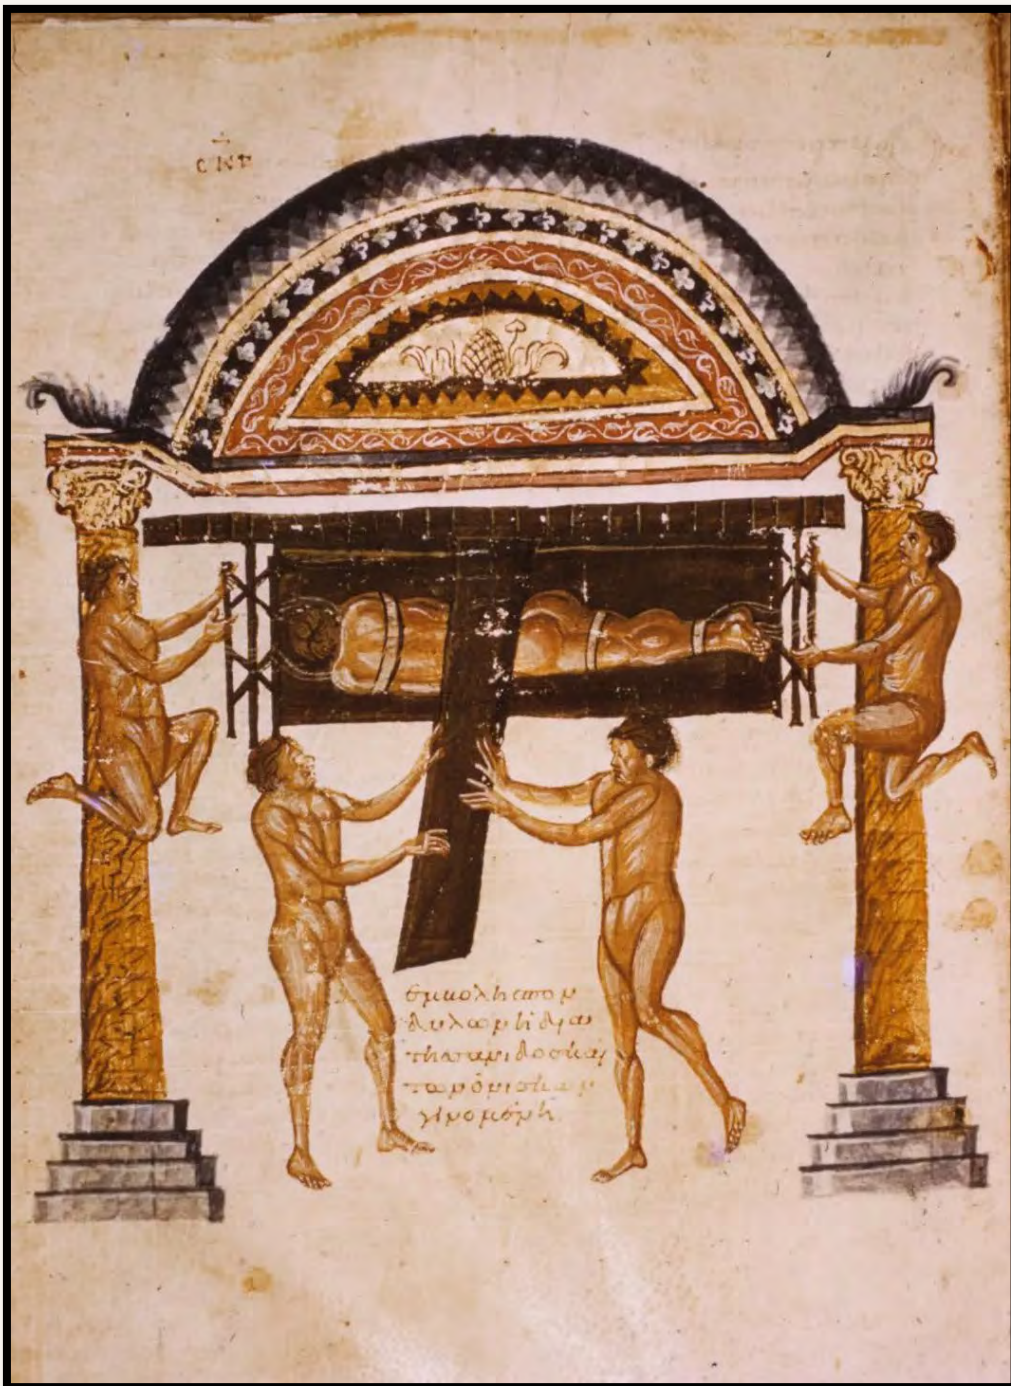 εμβολὴ σπον
δύλων ἡ διὰ
τῆς σανίδος καὶ
τῶν ὀνίσκων
γινομένη